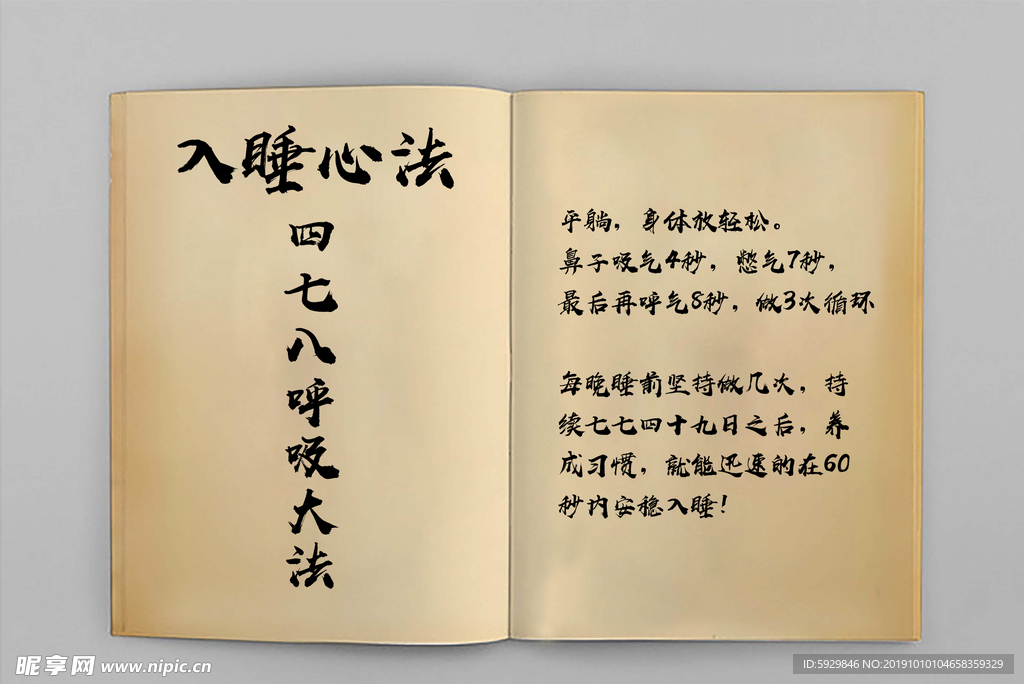 入睡心法
四七八呼吸大法
平躺，身体放轻松。
鼻子吸气4秒，憋气7秒，
最后再呼气8秒，做3次循环
每晚睡前坚持做几次，持
续七七四十九日之后，养
成习惯，就能迅速的在60
秒内安稳入睡！
昵享网 www.nipic.cn
ID:5929846 NO:20191010104658359329